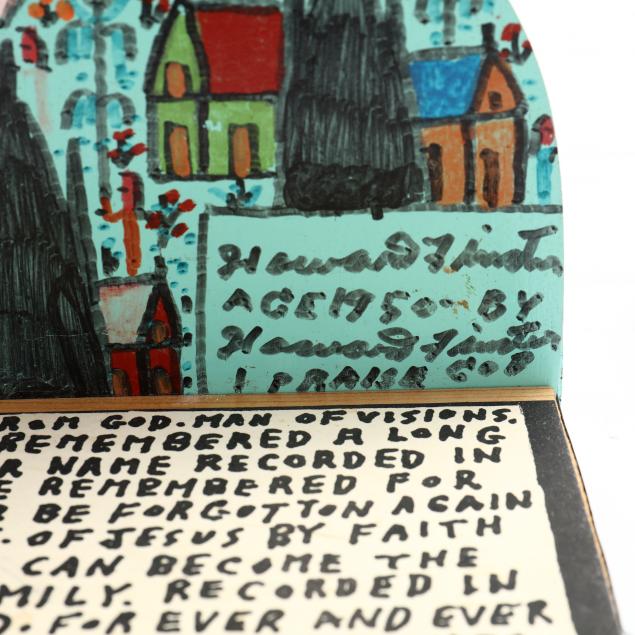 Howard Finster
AGE 1950- BY
Howard Finster
I PRAISE GOD
ROM GOD. MAN OF VISIONS.
REMEMBERED A LONG
R NAME RECORDED IN
E REMEMBERED FOR
R BE FORGOTTON AGAIN
. OF JESUS BY FAITH
CAN BECOME THE
MILY. RECORDED IN
D. FOR EVER AND EVER